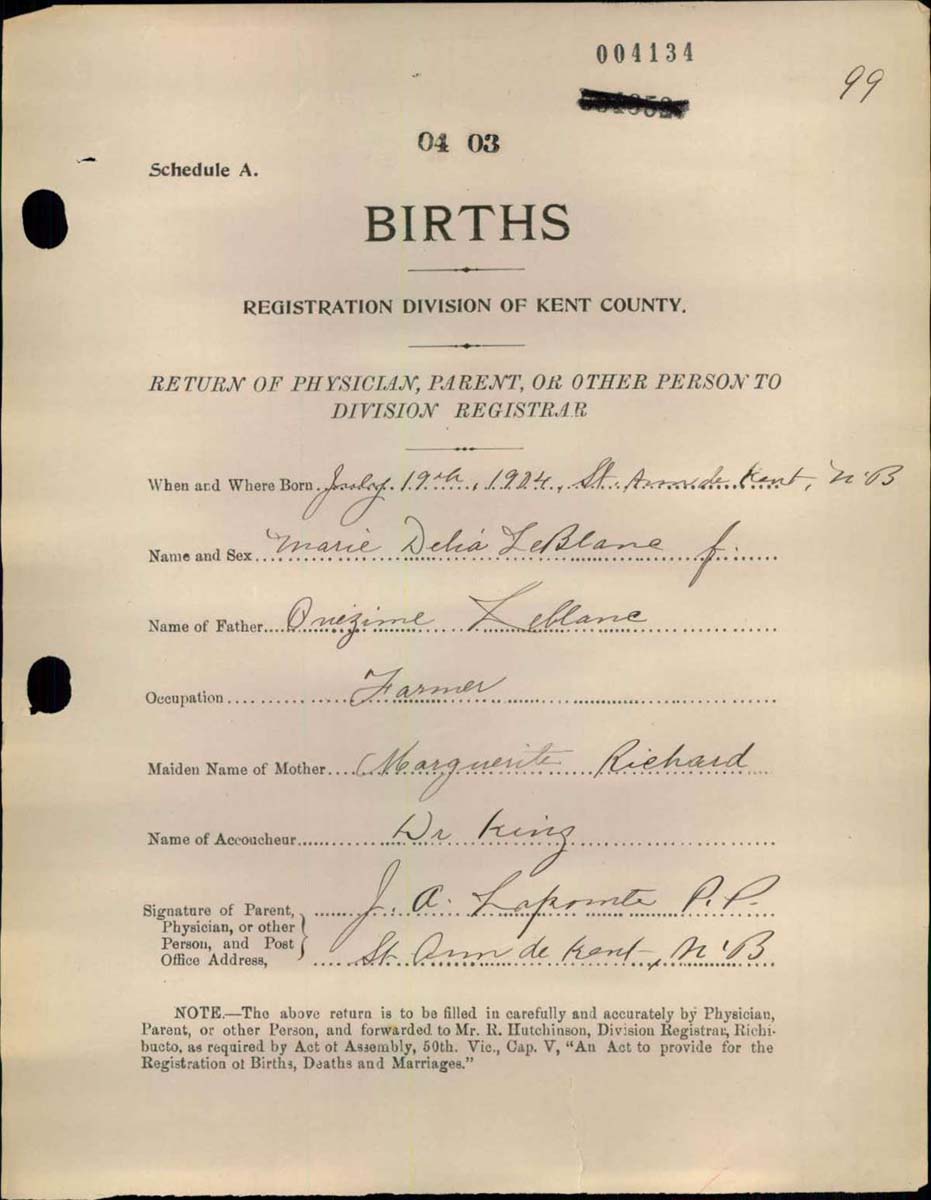 004134
99
04 03
Schedule A.
BIRTHS
REGISTRATION DIVISION OF KENT COUNTY.
RETURN OF PHYSICIAN, PARENT, OR OTHER PERSON TO
DIVISION REGISTRAR
When and Where Born July 19th, 1904, St. Ann de Kent, N'B
Name and Sex Marie Delia LeBlanc f.
Name of Father Onézime Leblanc
Occupation Farmer
Maiden Name of Mother Marguerite Richard
Name of Accoucheur Dr King
Signature of Parent, J. A. Lapointe P.P.
Physician, or other
Person, and Post
Office Address, St Ann de Kent, N'B
NOTE.—The above return is to be filled in carefully and accurately by Physician,
Parent, or other Person, and forwarded to Mr. R. Hutchinson, Division Registrar, Richi-
bucto, as required by Act ot Assembly, 50th. Vic., Cap. V, "An Act to provide for the
Registration of Births, Deaths and Marriages."